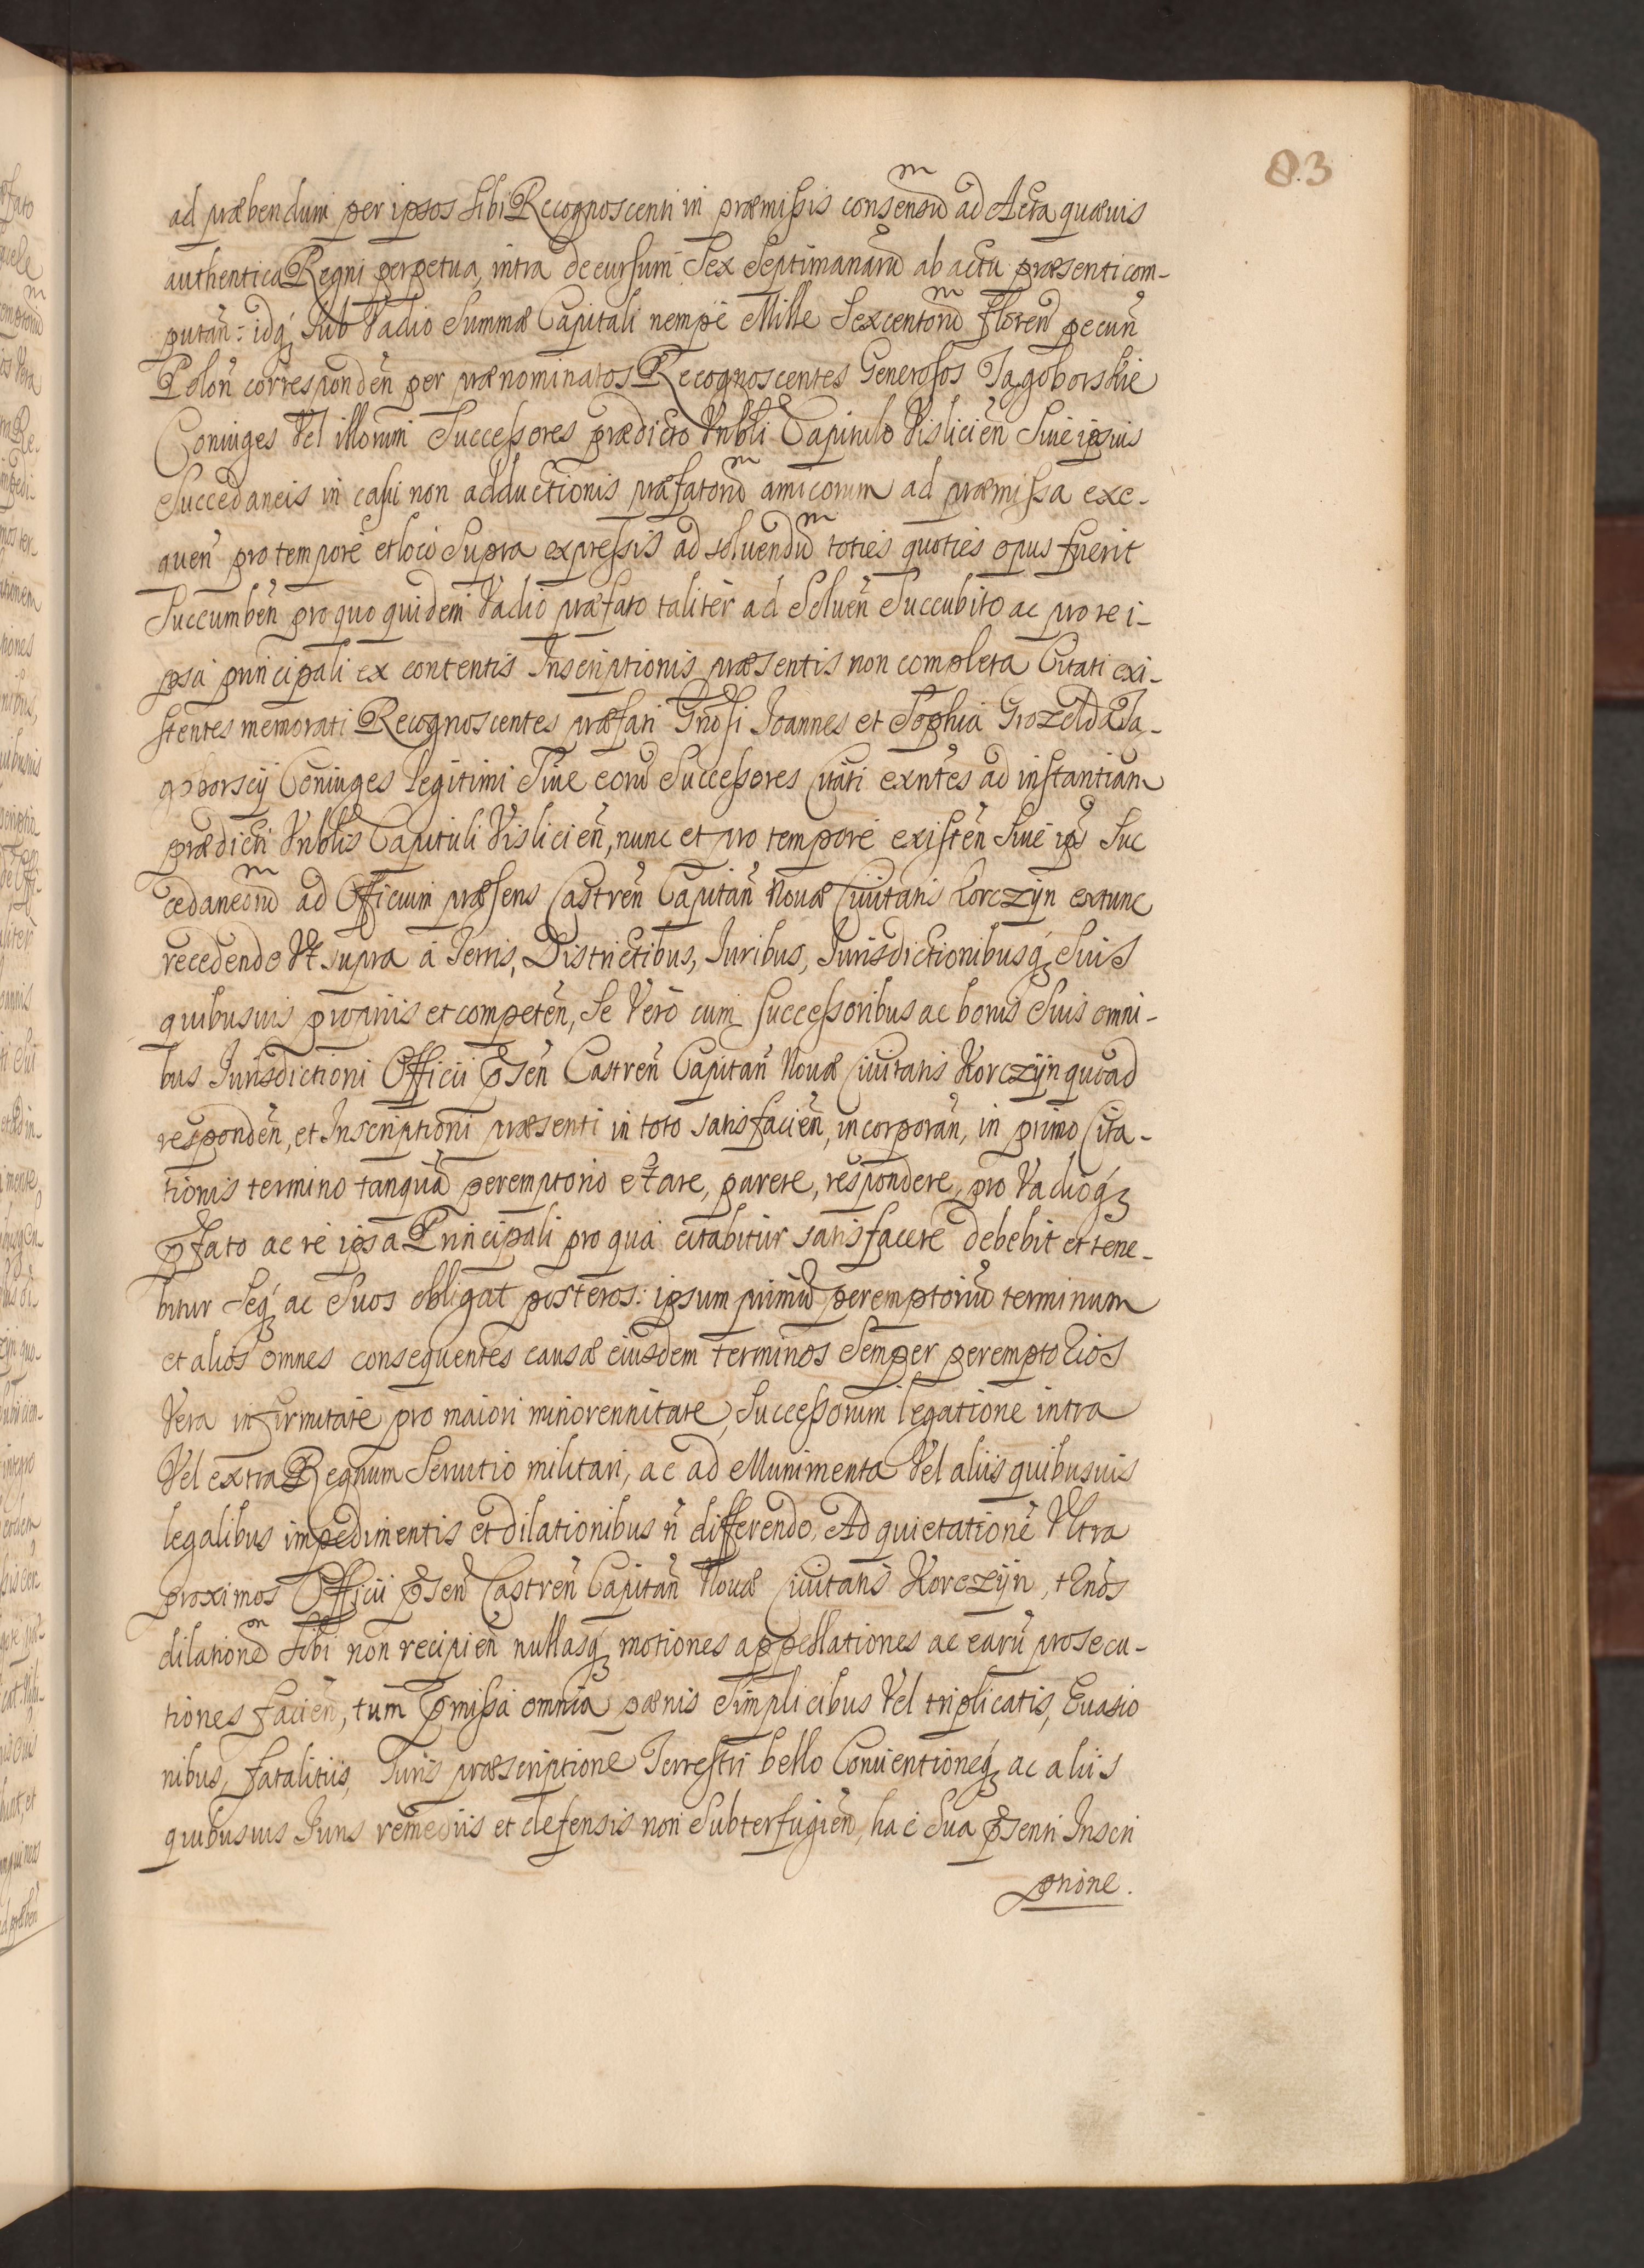 83
ad præbendum per ipsos sibi Recognoscenti in præmissis consensũm ad Acta quævis
authentica Regni perpetua, intra decursum Sex Septimanarũ ab actu præsenti com-
putañ: idq₃ Sub Vadio Summæ Capitali nempe Mille Sexcentorũm floreñ pecuñ
Poloñ correspondeñ per prænominatos Recognoscentes Generosos Jagoborskie
Coniuges Vel illorum Successores prædicto Vnbli Capitulo Vislicieñ Siue ipsius
Succedaneis in casu non adductionis præfatorũm amicorum ad præmissa exe-
queñ pro tempore et loco Supra expressis ad soluendũm toties quoties opus fuerit
Succumbeñ pro quo quidem Vadio præfato taliter ad Solueñ Succubito ac pro re i-
psa principali ex contentis Inscriptionis præsentis non completa Citati exi-
stentes memorati Recognoscentes præfati Gnosi Joannes et Sophia Grozelda Ja-
goborscÿ Coniuges legitimi Siue eorũ Successores Citati exñtes ad instantiam
prædicti Vnblis Capituli Vislicieñ, nunc et pro tempore existeñ Siue ips̃ Suc
cedaneorũm ad Officium præsens Castreñ Capitañ Nouæ Ciuitatis Korczÿn extunc
recedendo Vt supra a Terris, Districtibus, Juribus, Jurisdictionibusq₃ Suis
quibusuis proprijs et competeñ, Se Vero cum Successoribus ac bonis Suis omni-
bus Jurisdictioni Officii p̃señ Castreñ Capitañ Nouæ Ciuitatis Korczÿn quoad
respondeñ, et Inscriptioni præsenti in toto satisfacieñ, incorporañ, in primo Cita-
tionis termino tanquã peremptorio stare, parere, respondere, pro Vadioq₃
p̃fato ac re ipsa Principali pro qua citabitur satisfacere debebit et tene-
bitur Seq₃ ac Suos obligat posteros: ipsum primũ peremptoriũ terminum
et alios omnes consequentes causæ eiusdem terminos Semper peremptorios
Vera infirmitate pro maiori minorennitate, Successorum legatione intra
Vel extra Regnum Seruitio militari, ac ad Munimenta Vel aliis quibusuis
legalibus impedimentis et dilationibus ñ differendo. Ad quietationẽ Vltra
proximos Officii p̃señ Castreñ Capitañ Nouæ Ciuitatis Korczÿn, tẽnos
dilationẽm Sibi non recipieñ nullasq₃ motiones appellationes ac earũ prosecu-
tiones facieñ, tum p̃missa omnia pænis Simplicibus Vel triplicatis, Euasio
nibus, fatalitiis, Juris præscriptione Terrestri bello Conuentioneq₃ ac aliis
quibusuis Juris remediis et defensis non Subterfugieñ, hac Sua p̃senti Inscri
ptione.